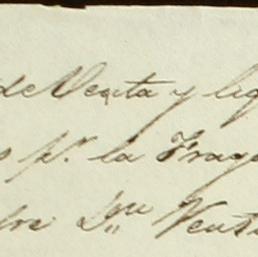 de Venta y liq
s pr. la Fraga
bre Dn. Vent